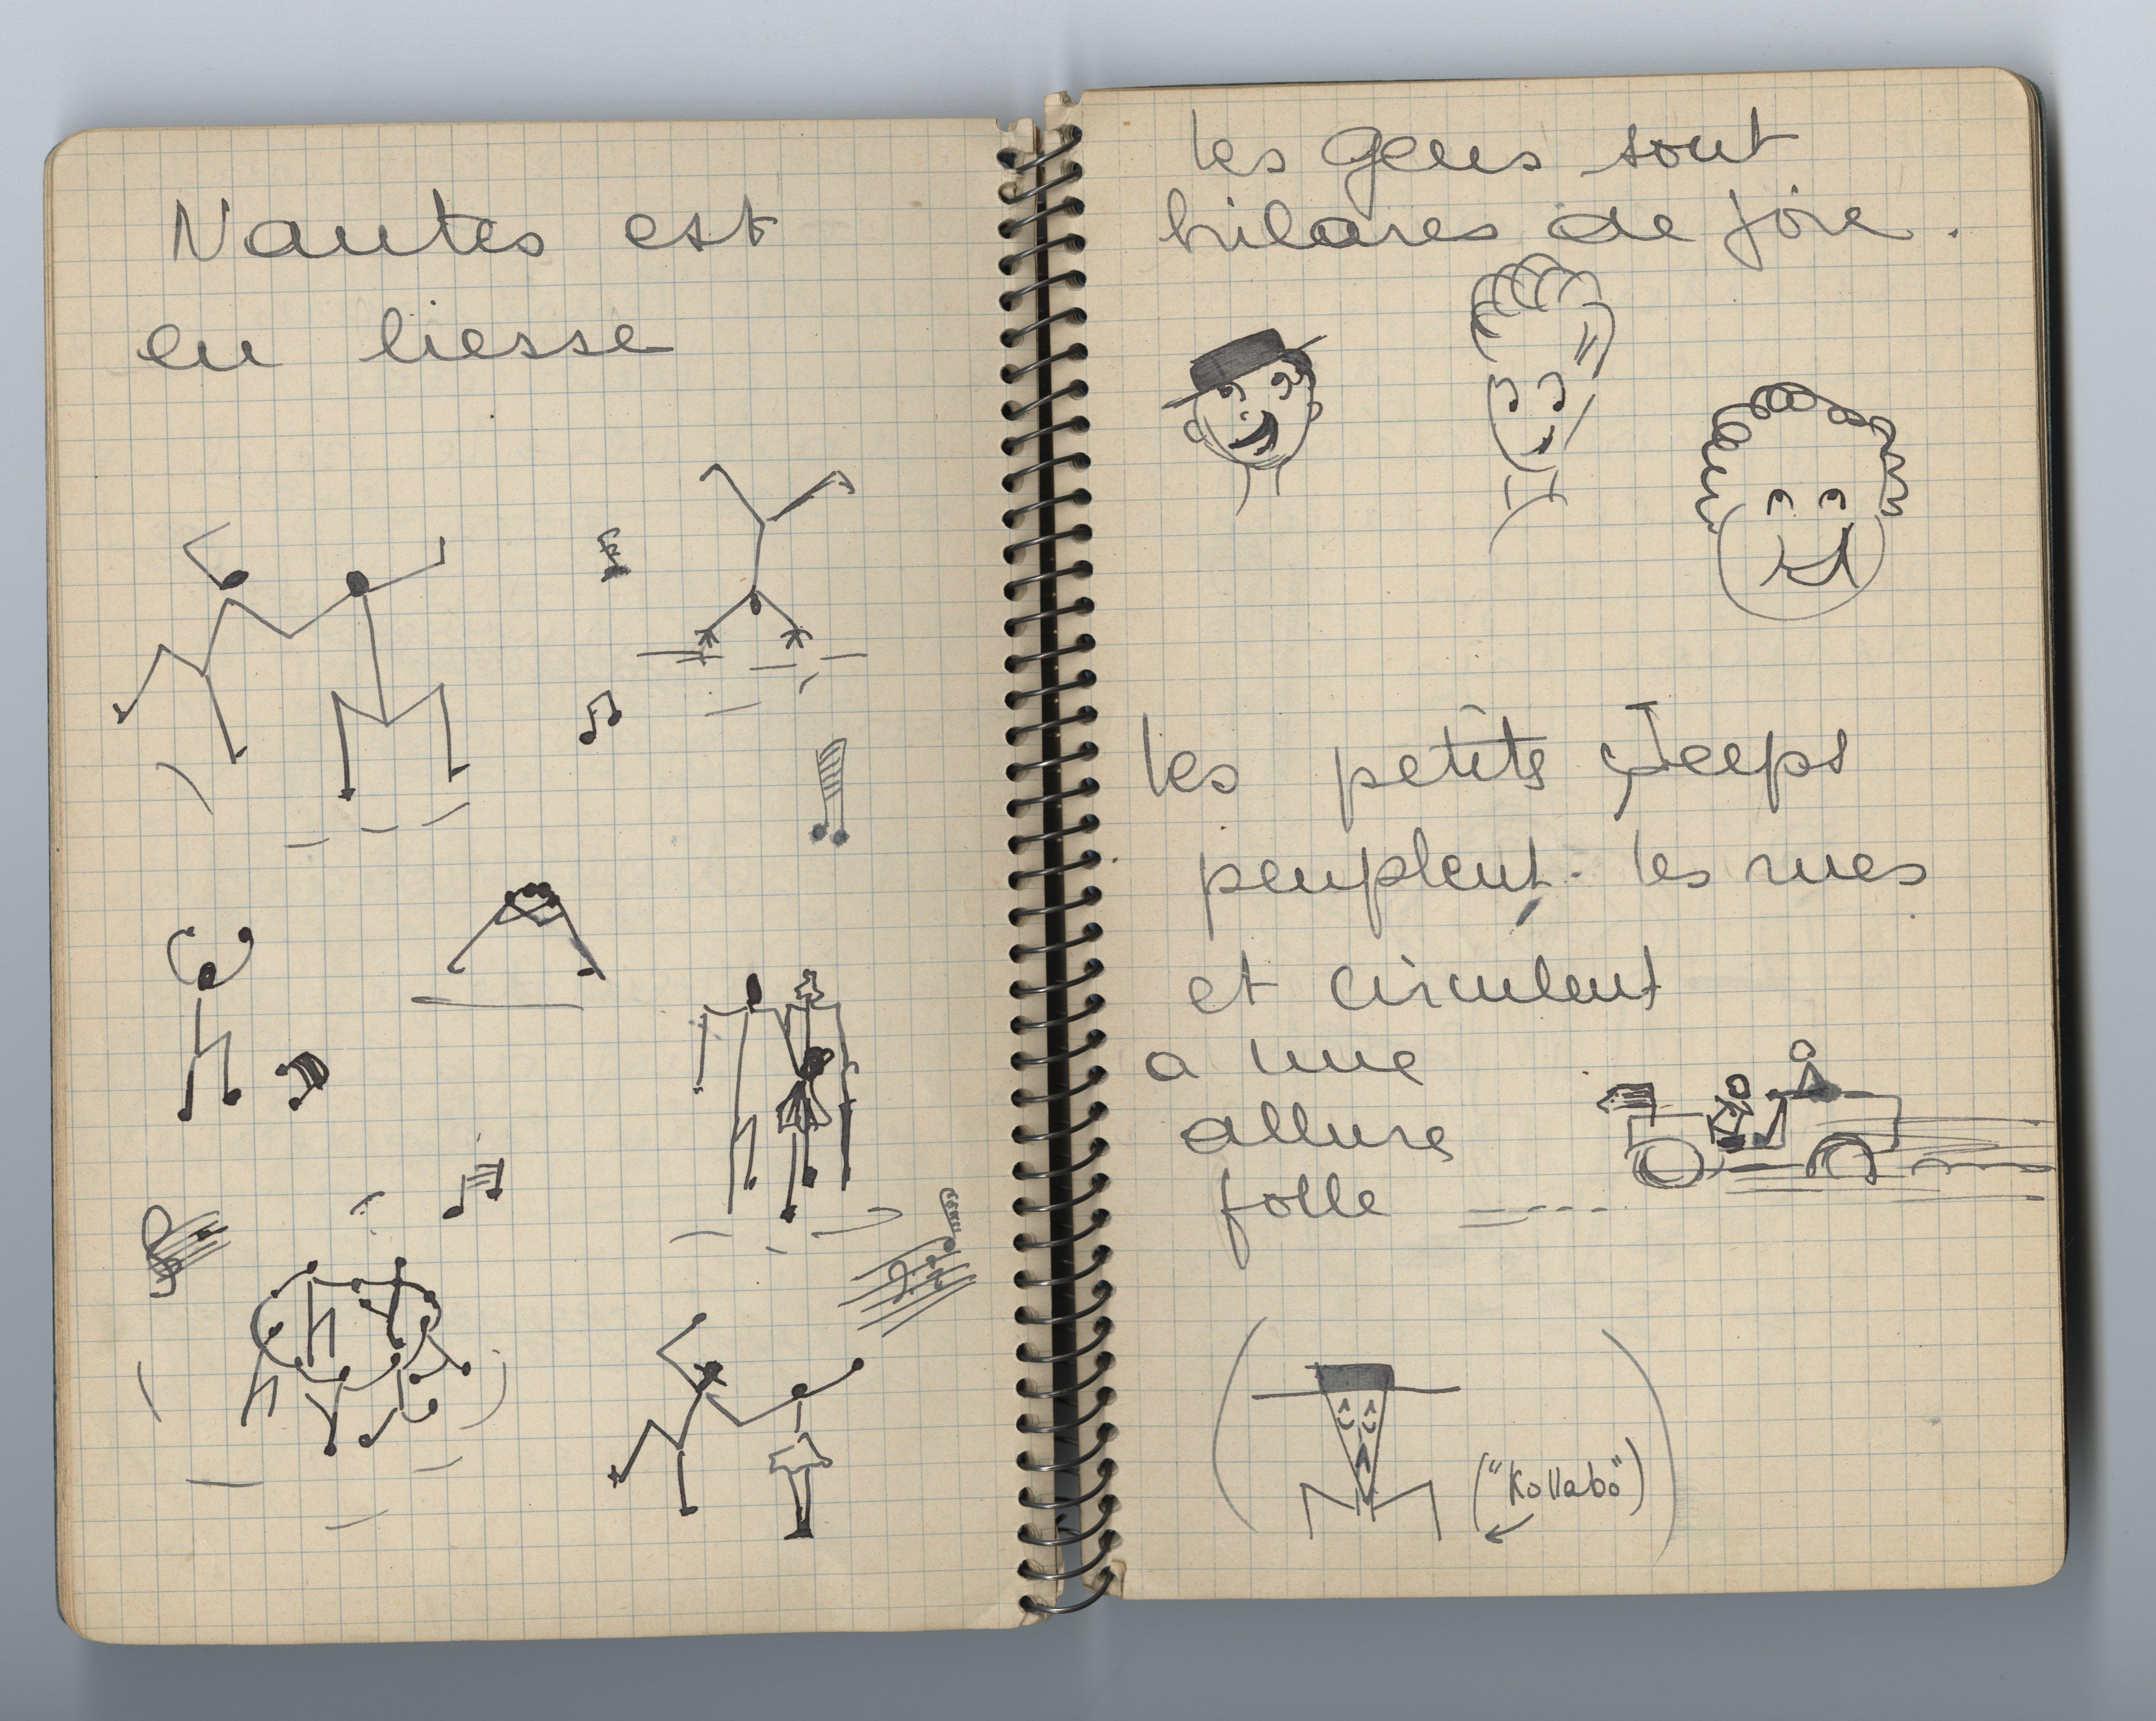 Nantes est
en liesse
les gens sont
hilares de joie.
les petits Jeeps
peuplent les rues
et circulent
a une
allure
folle ----
("Kollabo")